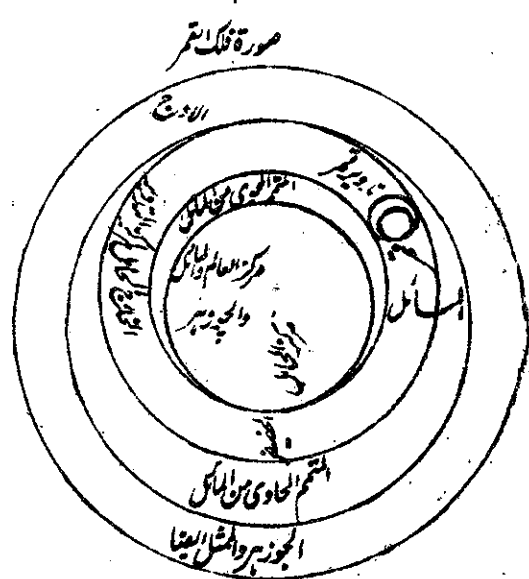 صورة فلك القمر
الاوج
تدوير قمر
المتمم المحوى من المائل
مركز العالم والمائل
والجوزهر
المائل
مركز الحامل
الحضيض
المتمم الحاوى من المائل
الجوزهر والممثل ايضا